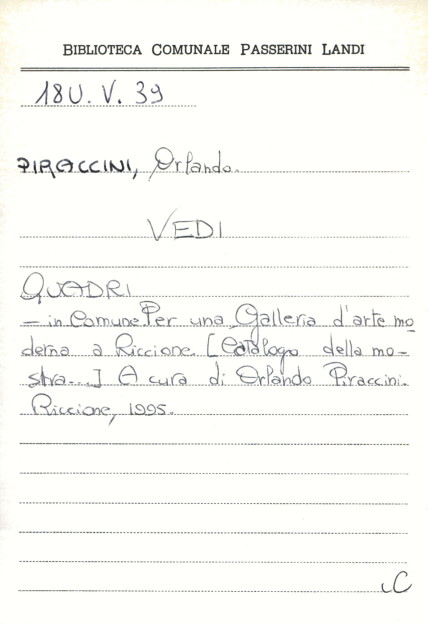 BIBLIOTECA COMUNALE PASSERINI LANDI
18U. V. 39
PIRACCINI, Orlando.
VEDI
QUADRI
- in Comune. Per una Galleria d'arte mo
derna a Riccione. [Catalogo della mo-
stra...] A cura di Orlando Piraccini.
Riccione, 1995.
C